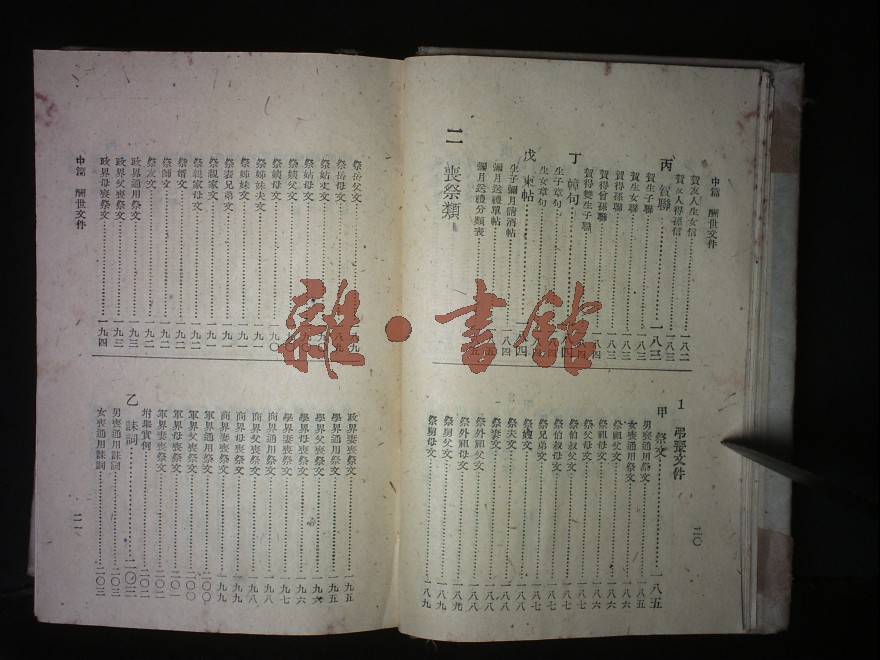 中篇　酬世文件
賀友人生女信……一八二
賀友人得孫信
丙　賀聯……一八三
賀生子聯……一八三
賀生女聯……一八三
賀得孫聯……一八三
賀得曾孫聯……一八四
賀得雙生子聯……八四
丁　幛句……四
生子幛句……四
生女幛句……四
戊　柬帖……四
生子彌月請酒帖……八四
彌月送禮單帖
彌月送禮分類表
二　喪祭類
1　弔喪文件
甲　祭文……一八五
男喪通用祭文……一八五
女喪通用祭文……一八六
祭祖父文……一八六
祭祖母文……一八六
祭父文……一八七
祭伯叔父文……一八七
祭伯叔母文……一八七
祭兄弟文……一八七
祭嫂文……一八八
祭夫文……一八八
祭妻文……一八八
祭外祖父文……一八八
祭外祖母文……一八九
祭舅父文……一八九
祭舅母文……一八九
二〇
祭岳父文……九
祭岳母文……八九
祭姑丈文……九〇
祭姑母文……九〇
祭姨父文……九〇
祭姨母文……一九〇
祭姊妹夫文……一九一
祭姊妹文……一九一
祭表兄弟文……一九一
祭親家文……一九一
祭親家母文……一九二
祭婿文……一九二
祭師文……一九二
祭友文……一九二
政界通用祭文……一九三
政界父喪祭文……一九三
政界母喪祭文……一九四
中篇　酬世文件
政界妻喪祭文……一九五
學界通用祭文……一九五
學界父喪祭文……一九六
學界母喪祭文……一九六
學界妻喪祭文……一九七
商界通用祭文……一九八
商界父喪祭文……一九八
商界母喪祭文……一九九
商界妻喪祭文……一九九
軍界通用祭文……二〇〇
軍界父喪祭文……二〇〇
軍界母喪祭文……二〇一
軍界妻喪祭文……二〇一
附舉實例……二〇二
乙　誄詞……二〇三
男喪通用誄詞……二〇三
女喪通用誄詞……二〇三
二一
雜·書館